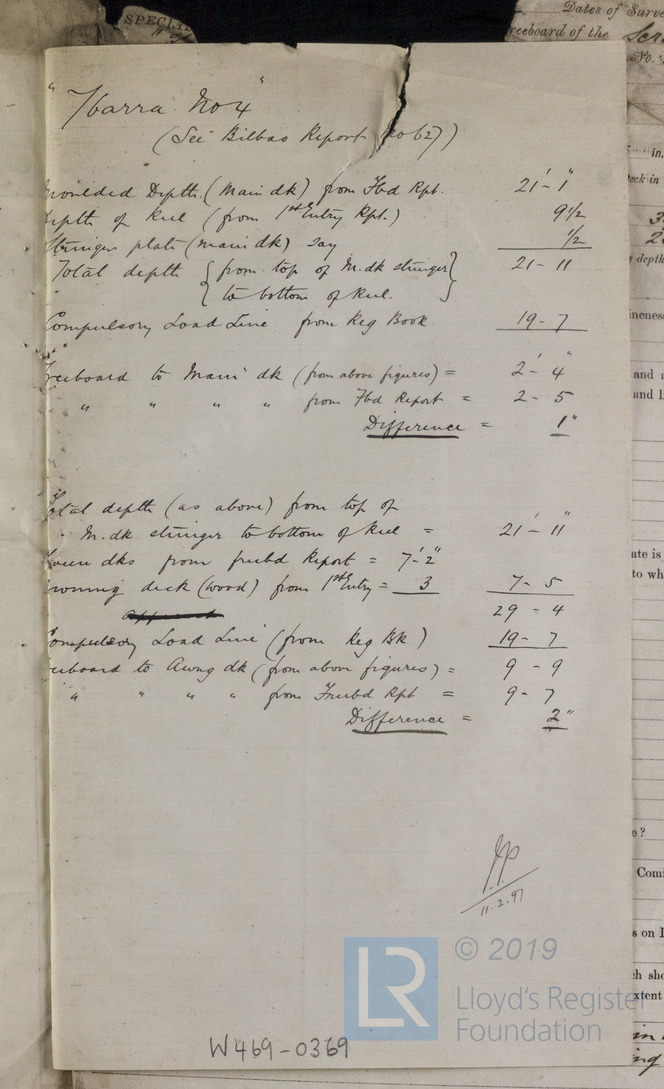 SPECIAL
Dates of Surve
reeboard of the
"Ybarra No 4"
(See Bilbao Report No 627)
moulded Depth (main dk) from Fbd Rpt. 21'-1"
Depth of Keel (from 1st Entry Rpt.) 9 1/2
Stringer plate (main dk) say 1/2
Total depth { from top of M. dk stringer } 21-11
to bottom of keel.
Compulsory Load Line from Reg Book 19-7
reeboard to Main dk (from above figures) = 2'-4"
" " " " from Fbd Report = 2-5
Difference = 1"
Total depth (as above) from top of
M. dk stringer to bottom of keel = 21'-11"
ween dks from freebd Report = 7'-2"
wning deck (wood) from 1st Entry = 3 7-5
29-4
Compulsory Load Line (from Reg Bk) 19-7
eeboard to Awng dk (from above figures) = 9-9
" " " " from Freebd Rpt = 9-7
Difference = 2"
11.2.97
W469-0369
© 2019
LR
Lloyd's Register
Foundation
in.
eck in
depth
ineness
and a
and li
ate is
to wh
e?
Comi
s on I
ch sho
xtent